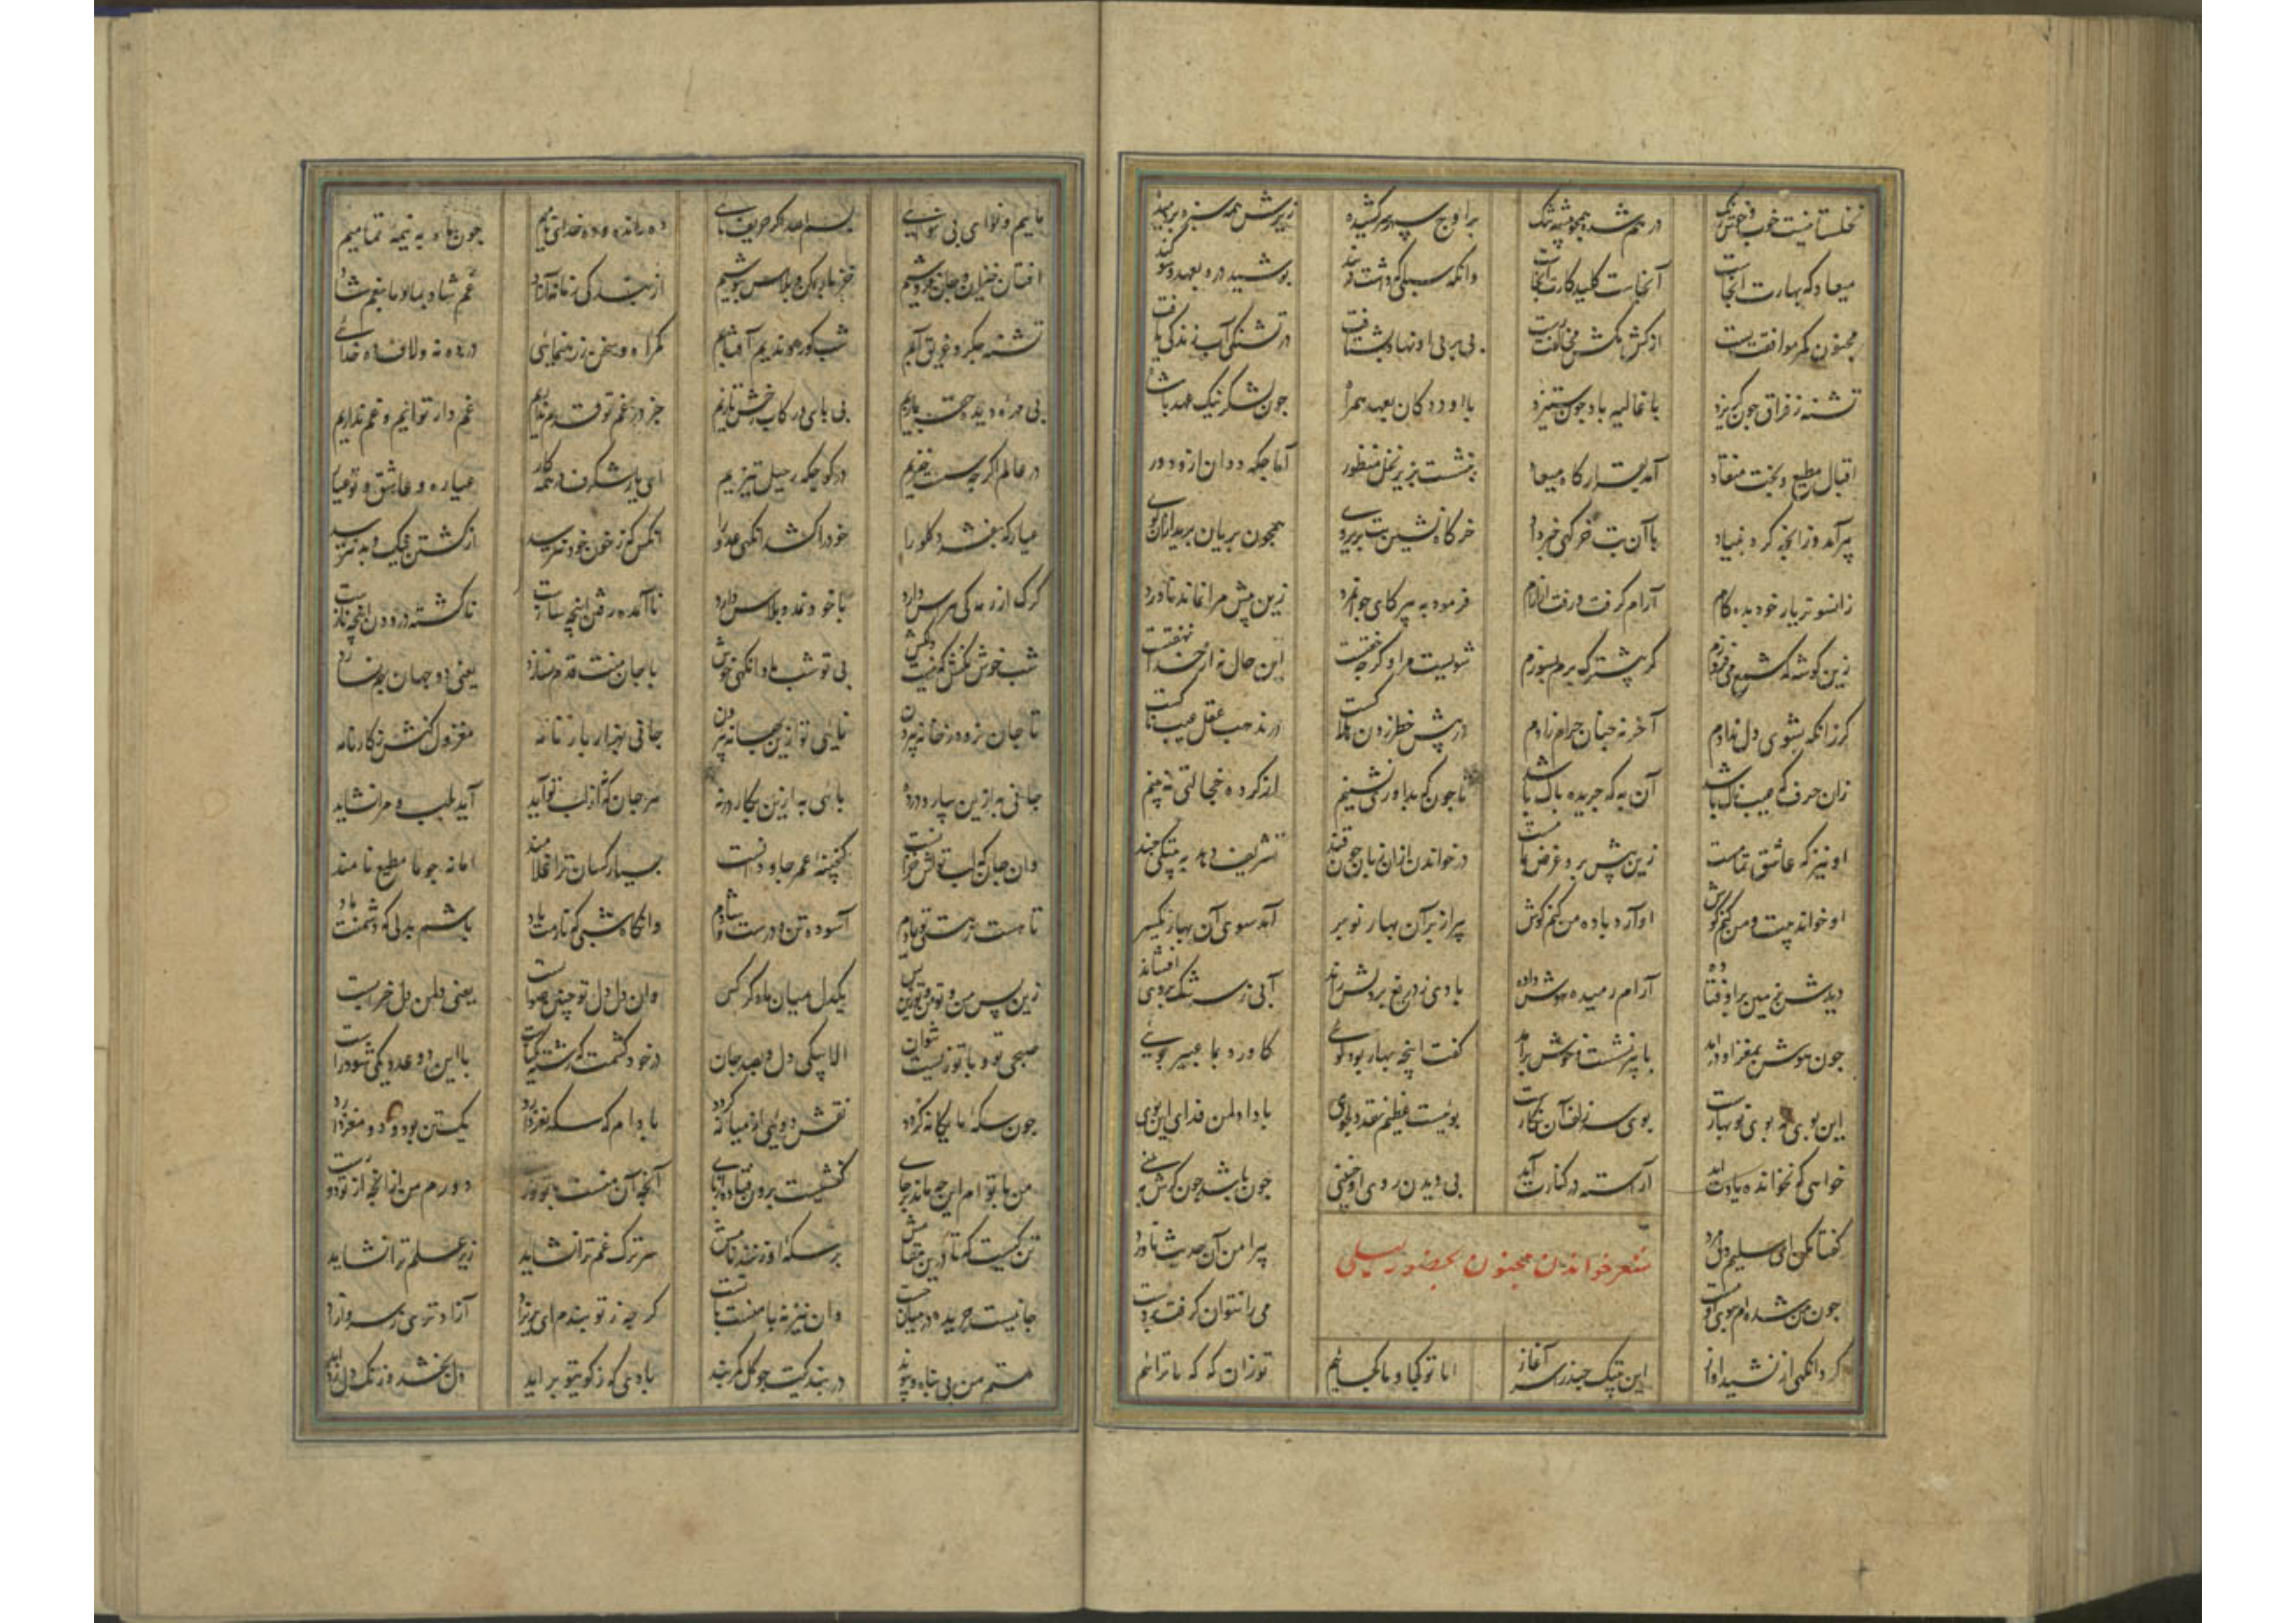 نخلستانیست خوب و خوش رنگ در هم شده همچو بیشه تنگ بر اوج سپهر سر کشیده زیرش همه سبزه بردمیده
میعادگه بهارت آنجاست آنجاست کلید کارت آنجاست وانگه سلبی که داشت در بند پوشید درو بعهد و سوگند
مجنون کمر موافقت بست از کشمکش مخالفت رست پی بر پی او نهاد و بشتافت در تشنگی آب زندگی یافت
تشنه ز فرات چون گریزد با غالیه باد چون ستیزد با او ددگان بعهد همراه چون لشکر نیک عهد با شاه
اقبال مطیع و بخت منقاد آمد بقرارگاه میعاد بنشست بزیر نخل منظور آماجگه ددان ازو دور
پیر آمد و زانچه کرد بنیاد با آن بت خرگهی خبر داد خرگاه نشین بت پری روی همچون پریان پرید ازان کوی
زانسوتر یار خود بده گام آرام گرفت و رفت از آرام فرمود به پیر کای جوانمرد زین بیش مرا نماند ناورد
زین گونه که شمع می فروزم گر پیشترک روم بسوزم شوئیست مرا و گرچه خفتست این حال نه از خدا نهفتست
گرزانکه بشوی دل ندادم آخر نه چنان حرام زادم در پیش خطر زدن هلاکست در مذهب عقل عیبناکست
زان حرف که عیب ناک باشد آن به که جریده پاک باشد تا چون که بداوری نشینم از کرده خجالتی نبینم
او نیز که عاشق تمامست زین بیش برو غرض حرامست درخواندن ازان زبان چون قند تشریف دهد به بیتکی چند
او خواند بیت و من کنم گوش او آرد باده من کنم نوش پیر از بر آن بهار نوبر آمد سوی آن بهار دیگر
دیدش بزمین بر اوفتاده آرام رمیده هوش داده بادی ز دریغ بر دلش راند آبی ز سرشک بر وی افشاند
چون هوش بمغز او درآمد با پیر نشست و خوش برآمد گفت اینچه بهار بود گوئی کاورد بما عبیر بوئی
این بوی نه بوی نوبهارست بوی سر زلف آن نگارست بوئیست عظیم نغز و دلجوی بادا دل من فدای این بوی
خواهی که نخوانده یارت آید آراسته در کنارت آید بی دیدن روی او چنینی چون باشد چون گرش ببینی
گفتا مکن ای سلیم دل مرد پیرامن آن حدیث ناورد
شعر خواندن مجنون بحضور لیلی
چون من شده ام ببوی او مست می را نتوان گرفت بر دست
کرد آنگهی از نشید آواز این بیتک چند را سر آغاز اما تو کجا و ما کجائیم تو زان که که ما ترائیم
مائیم و نوای بی نوائی بسم الله اگر حریف مائی ده رانده و ده خدای نامیم چون ماه به نیمه تمامیم
افتان خیزان و جان فروشیم خز پاره کن و پلاس پوشیم از بندگی زمانه آزاد غم شاد بما و ما بغم شاد
تشنه جگر و غریق آبیم شب کور و ندیم آفتابیم گمراه و سخن ز رهنمائی در ده نه و لاف ده خدائی
بی مهره و دیده حقه بازیم بی پای و رکاب رخش تازیم جز در غم تو قدم نداریم غم دار توایم و غم نداریم
در عالم اگرچه سست خیزیم در کوچگه رحیل تیزیم
عیاره و عاشق و تو عیار
عیار که بفشرد گلو را خود را کشد آنگهی عدو را آنکس که ز خون خود نترسد از کشتن نیک و بد نترسد
گرگ از رمه کی هراس دارد با خود نمد و پلاس دارد ناآمده رفتن اینچه سازست ناکشته درودن اینچه نازست
شب خوش مکنش که نیست دلکش بی تو شب ما و آنگهی خوش با جان منت قدم نسازد یعنی دو جهان بهم نسازد
تا جان نرود ز خانه بیرون نائی تو ازین بهانه بیرون جانی بهزار بار نامه معزول کنش ز کارنامه
جانی به ازین بیار و درده پائی به ازین بکار درنه هر جان که نه از لب تو آید آید بلب و مرا نشاید
وان جان که لب تواش خزانست گنجینه عمر جاودانست بسیار کسان ترا غلامند اما نه چو ما مطیع نامند
تا هست ز هستی تو یادم آسوده تن و درست و شادم وانگاه شبی که نارمت یاد باشم بدلی که دشمنت باد
زین پس من و تو من و تو زین پس یکدل میان ما دگر کس وان دل دل تو چنین صوابست یعنی دل من دلی خرابست
صبحی تو و با تو زیست نتوان الا بیکی دل و بصد جان در خود کشمت که رشته یکتاست تا این دو عدد یکی شود راست
چون سکه ما یگانه گردد نقش دوئی از میانه گردد بادام که سکه نغز دارد یکتن بود و دو مغز دارد
من با تو ام این چو ماند بر جای کفشیست برون فتاده از پای آنچ آن منست با تو نورست دورم من از آنچه از تو دورست
تن کیست که تا درین مقامش بر سکه او زنند نامش سر ترک غم ترا نشاید زیر علم ترا نشاید
جانیست جریده در میانت وان نیز نه با منست با تست
هستم من بی پناه و پیوند در بند